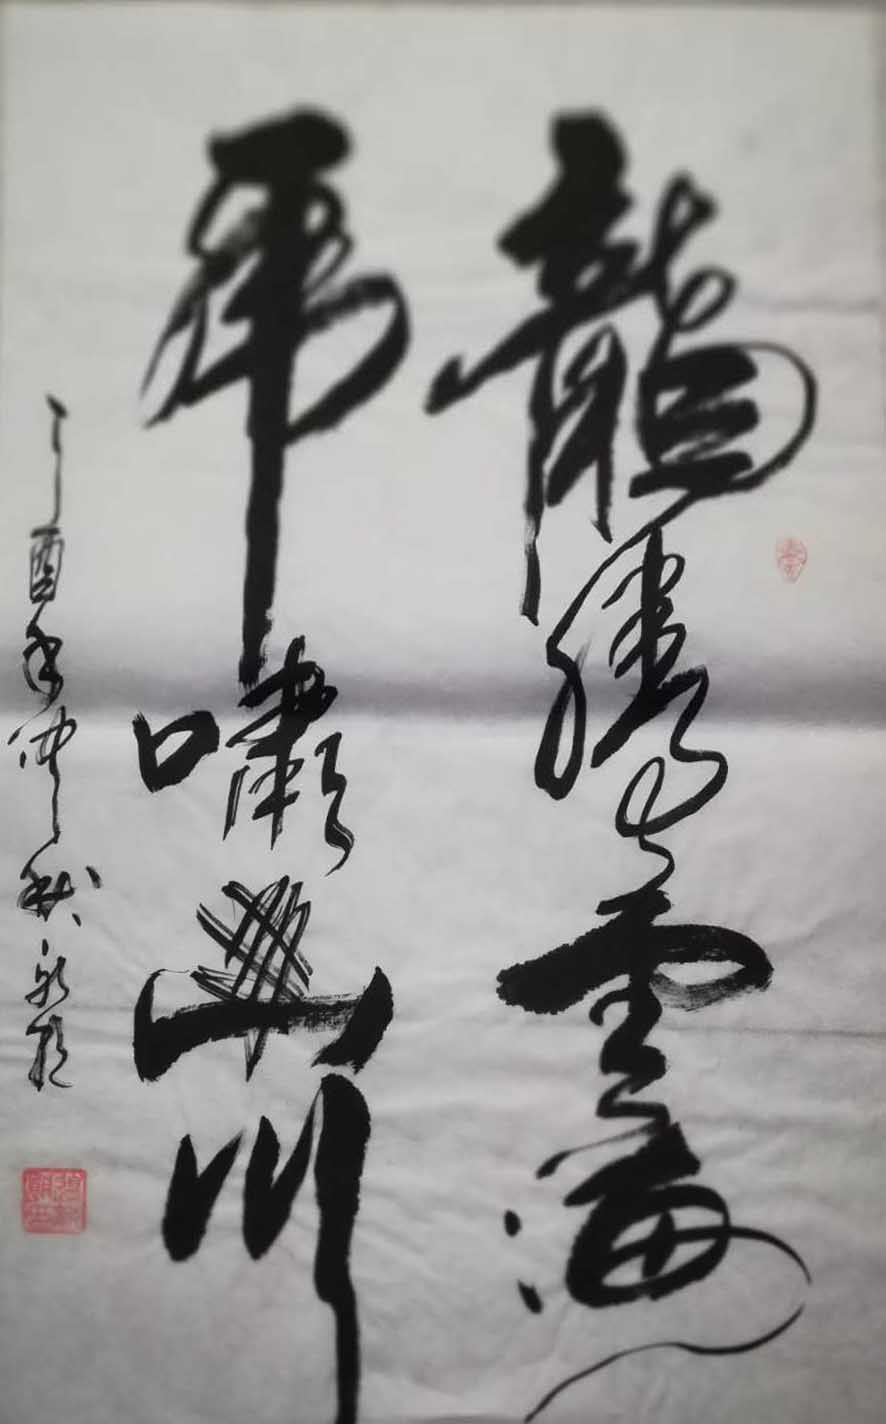 龍騰雲海
虎嘯山川
丁酉年仲秋